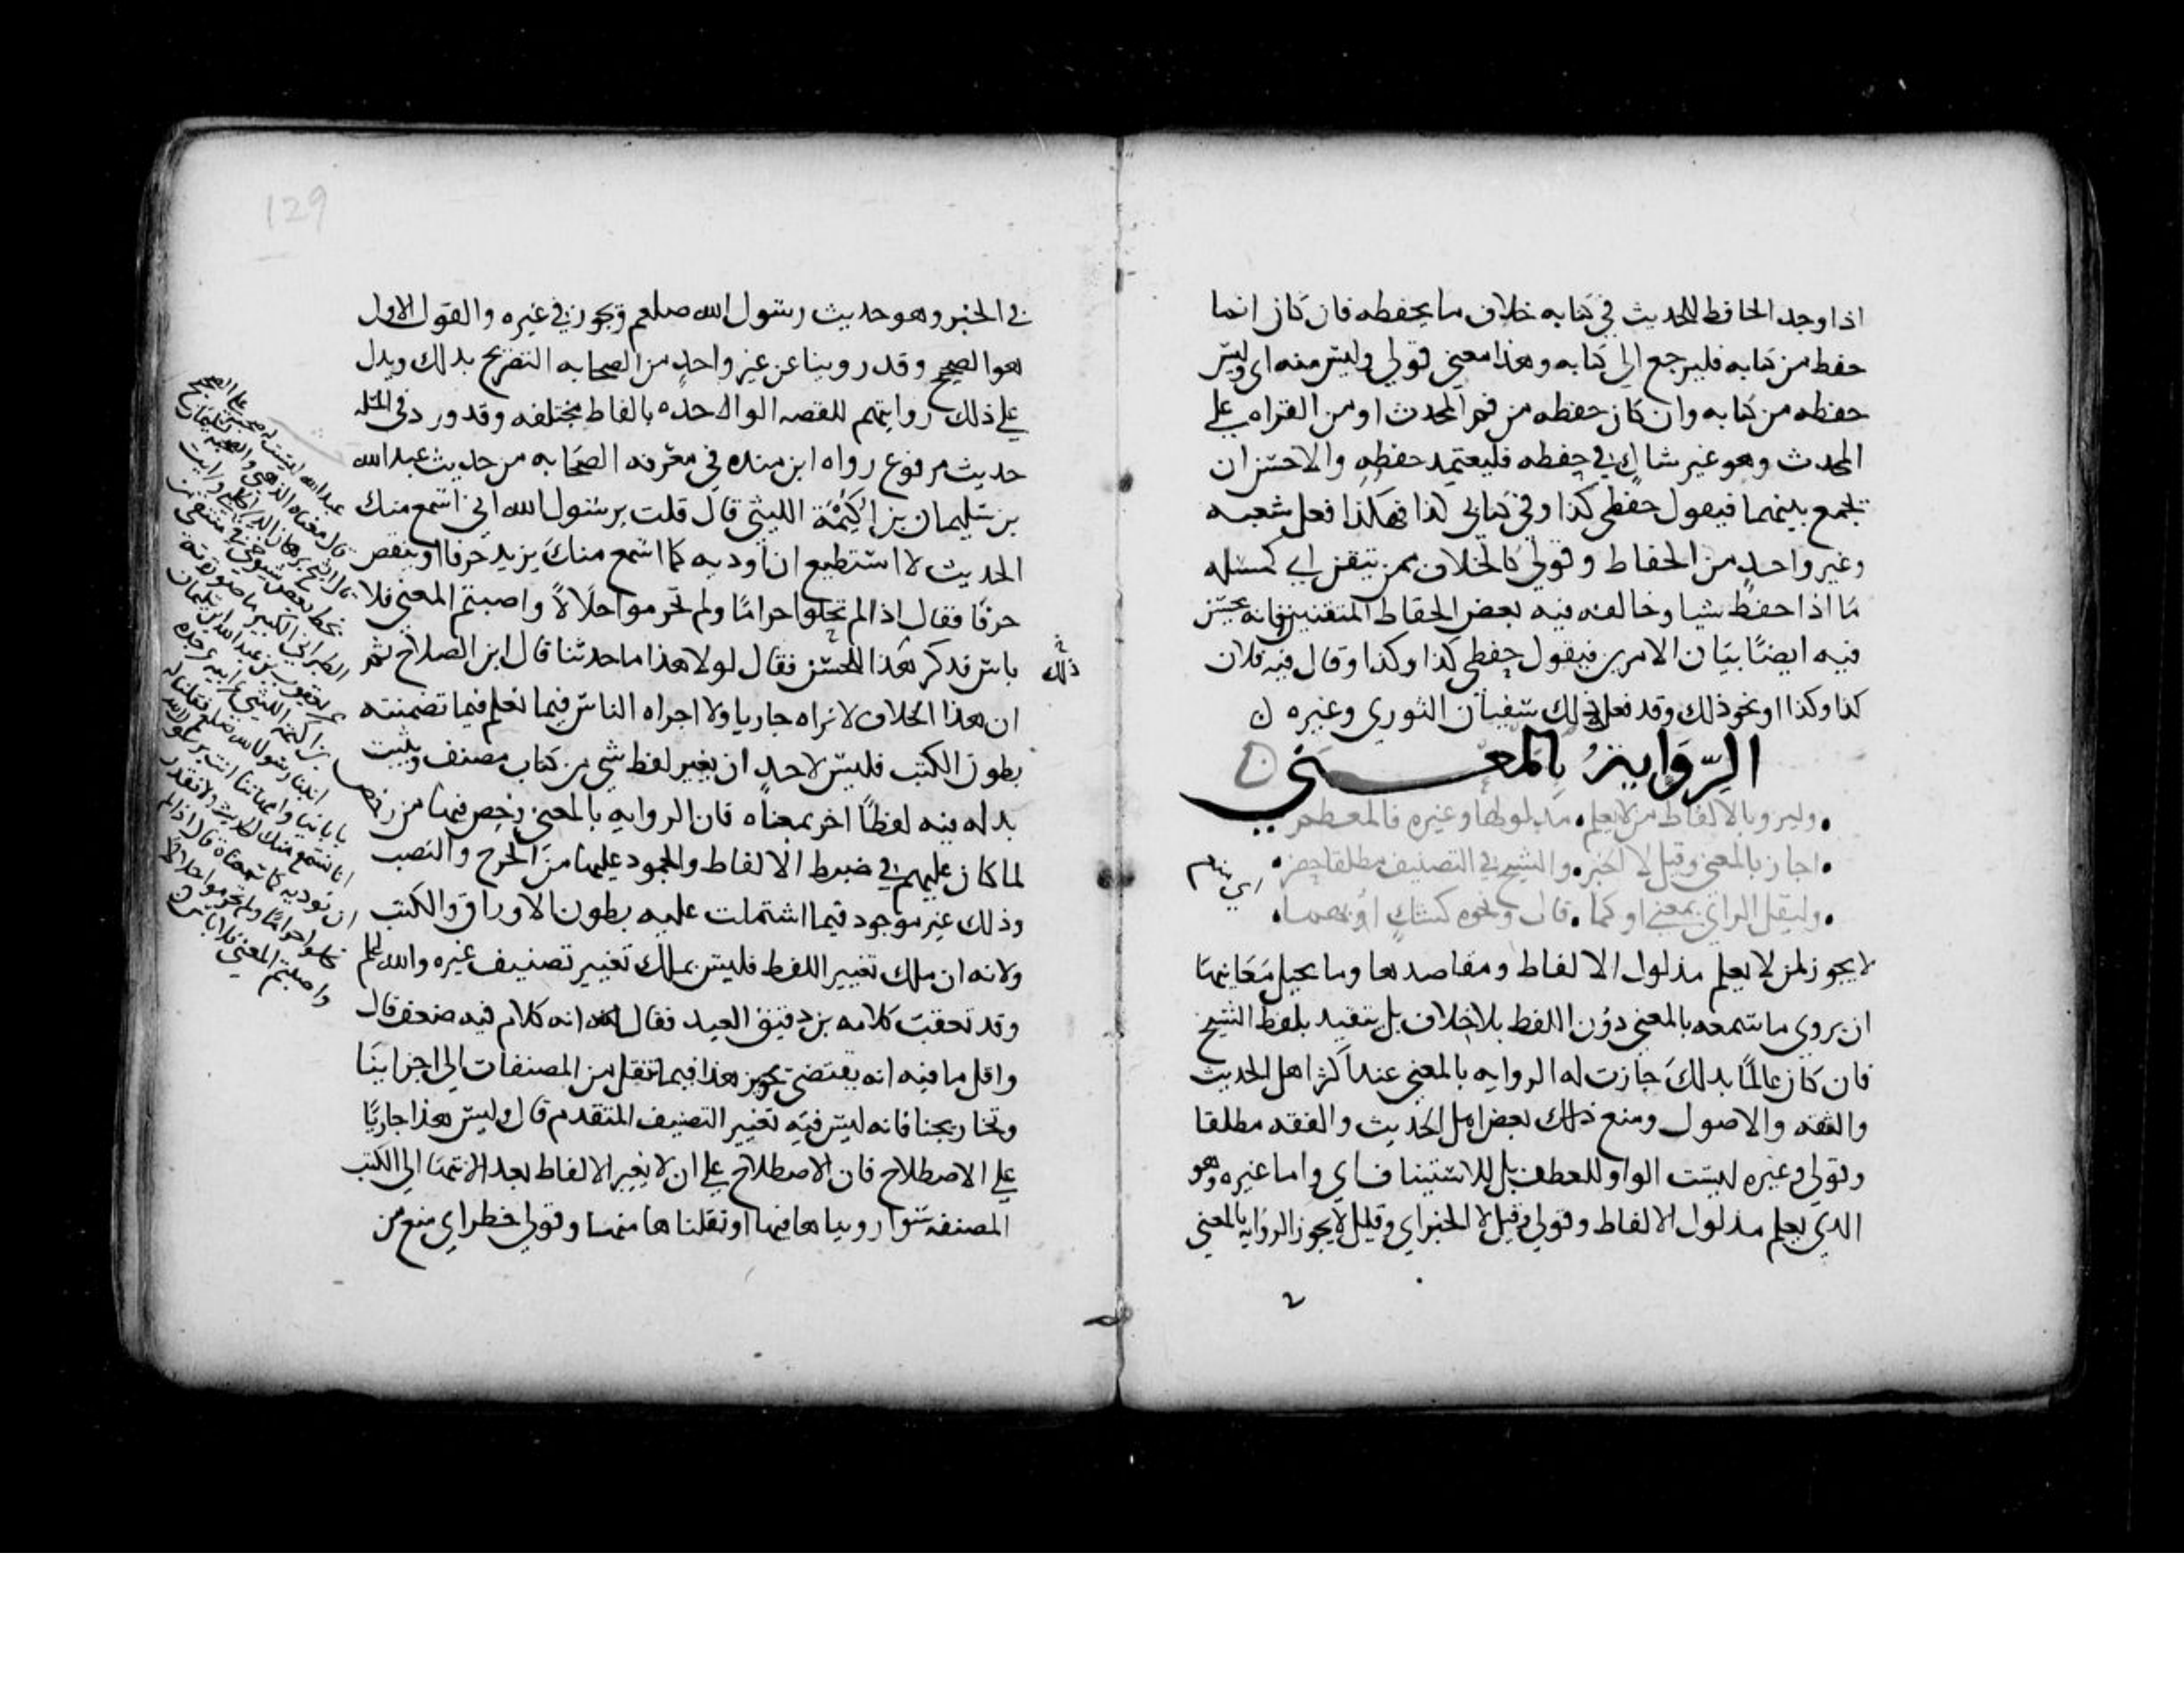 اذا وجد الحافظ للحديث في كتابه خلاف ما يحفظه فان كان انما
حفظ من كتابه فليرجع الى كتابه وهذا معنى قولي وليس منه اي وليس
حفظه من كتابه وان كان حفظه من فم المحدث او من القراه على
المحدث وهو غير شاك في حفظه فليعتمد حفظه والاحسن ان
يجمع بينهما فيقول حفظي كذا وفي كتابي كذا فهكذا فعل شعبه
وغير واحد من الحفاظ وقولي كالخلاف ممن يتقن اي كمسله
ما اذا حفظ شيا وخالفه فيه بعض الحفاظ المتقنين فانه يحسن
فيه ايضا بيان الامرين فيقول حفظي كذا وكذا وقال فيه فلان
كذا وكذا او نحو ذلك وقد فعل ذلك سفيان الثوري وغيره ن
الرواية بالمعنى
وليرو بالالفاظ من لا يعلم • مدلولها وغيره فالمعظم
• اجاز بالمعنى وقيل لا الخبر • والشيخ في التصنيف مطلقا حظر •
• وليقل الراوي بمعنى او كما • قال ونحوه كشك ابهما •
لا يجوز لمن لا يعلم مدلول الالفاظ ومقاصدها وما يحيل معانيها
ان يروي ما سمعه بالمعنى دون اللفظ بلا خلاف بل يتقيد بلفظ الشيخ
فان كان عالما بذلك جازت له الروايه بالمعنى عند اكثر اهل الحديث
والفقه والاصول ومنع ذلك بعض اهل الحديث والفقه مطلقا
وقولي وغيره ليست الواو للعطف بل للاستيناف اي واما غيره وهو
الذي يعلم مدلول الالفاظ وقولي وقيل لا الخبر اي وقيل لا يجوز الروايه بالمعنى
129
في الخبر وهو حديث رسول الله صلعم ويجوز في غيره والقول الاول
هو الصحيح وقد روينا عن غير واحد من الصحابه التصريح بذلك ويدل
على ذلك روايتهم للقصه الواحده بالفاظ مختلفه وقد ورد في المسله
حديث مرفوع رواه ابن منده في معرفه الصحابه من حديث عبد الله
بن سليمان بن اكيمة الليثي قال قلت يرسول الله اني اسمع منك
الحديث لا استطيع ان اوديه كما اسمع منك يزيد حرفا او ينقص
حرفا فقال اذا لم تحلوا حراما ولم تحرموا حلالا واصبتم المعنى فلا
باس فذكر هذا للحسن فقال لولا هذا ما حدثنا قال ابن الصلاح ثم
ذلك
ان هذا الخلاف لا نراه جاريا ولا اجراه الناس فيما نعلم فيما تضمنته
بطون الكتب فليس لاحد ان يغير لفظ شي من كتاب مصنف ويثبت
بدله فيه لفظا اخر بمعناه فان الروايه بالمعنى رخص فيها من رخص
لما كان عليهم في ضبط الالفاظ والجمود عليها من الحرج والنصب
وذلك غير موجود فيما اشتملت عليه بطون الاوراق والكتب
ولانه ان ملك تغيير اللفظ فليس يملك تغيير تصنيف غيره والله اعلم
وقد تعقب كلامه بن دقيق العيد فقال انه كلام فيه ضعف قال
واقل ما فيه انه يقتضي تجويز هذا فيما ننقل من المصنفات الى اجزاينا
وتخاريجنا فانه ليس فيه تغيير التصنيف المتقدم قال وليس هذا جاريا
على الاصطلاح فان الاصطلاح على ان لا يغير الالفاظ بعد الانتها الى الكتب
المصنفه سوا رويناها فيها او نقلناها منها وقولي خطر اي منع من
بخط بعض شيوخي
الطبراني الكبير
يعقوب بن عبد الله بن سليمان
بن اكيمة الليثي عن ابيه عن جده
اتينا رسول الله صلعم فقلنا له
بابائنا وامهاتنا انت يرسول الله
انا نسمع منك الحديث ولا نقدر
ان نوديه كما سمعناه قال اذا لم
تحلوا حراما ولم تحرموا حلالا
واصبتم المعنى فلا باس